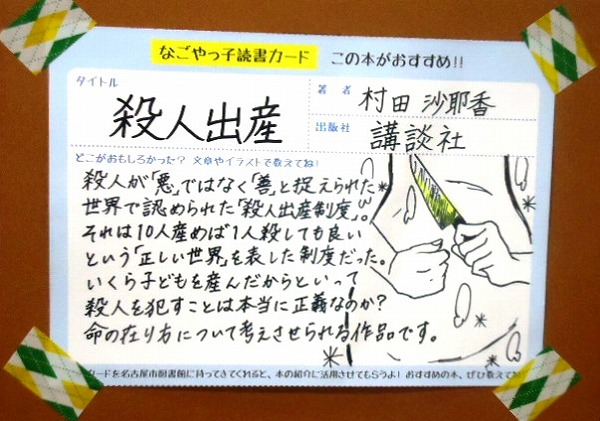 なごやっ子読書カード この本がおすすめ!!
タイトル
殺人出産
著者 村田 沙耶香
出版社 講談社
どこがおもしろかった? 文章やイラストで教えてね!
殺人が「悪」ではなく「善」と捉えられた
世界で認められた「殺人出産制度」。
それは10人産めば1人殺しても良い
という「正しい世界」を表した制度だった。
いくら子どもを産んだからといって
殺人を犯すことは本当に正義なのか?
命の在り方について考えさせられる作品です。
カードを名古屋市図書館に持ってきてくれると、本の紹介に活用させてもらうよ! おすすめの本、ぜひ教えてね